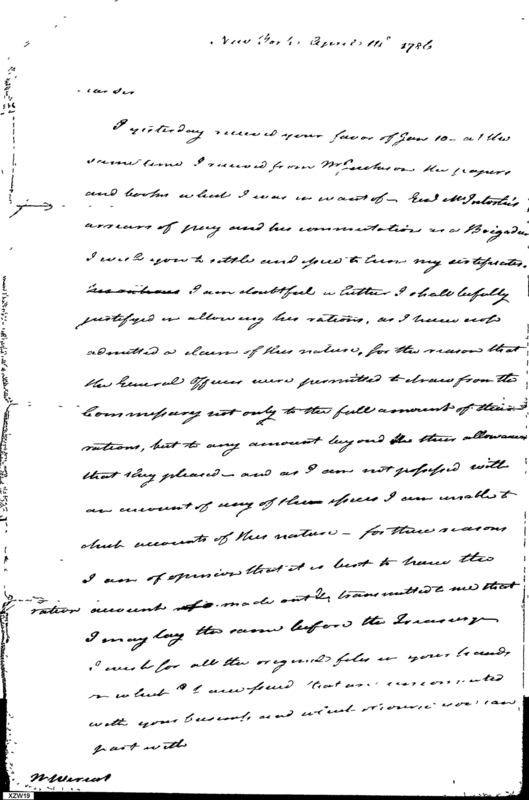 New York April 11th 1786
Sir
I yesterday received your favor of Jany 10 - at the
same time I received from Mr the papers
and books which I was in want of - Genl McIntosh's
arrears of pay and his commutation as a Brigadier
I wish you to settle and to him my certificates.
I am doubtful whether I shall be fully
justifyed in allowing his rations, as I have not
admitted a claim of this nature, for the reason that
the General Officers were permitted to draw from the
Commissary not only to the full amount of their
rations, but to any amount beyond the their allowance
that they pleased - and as I am not possessed with
an account of any of these I am unable to
check accounts of this nature - for these reasons
I am of opinion that it is best to have the
ration account made out & transmitted to me that
I may lay the same before the Treasury
I wish for all the original files in your hands
in which are
with your and which of course you can
part with
XZW19